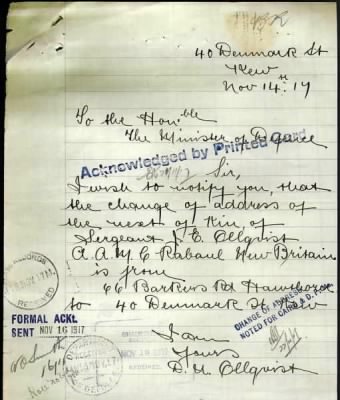 40 Denmark St
Kew
Nov 14th 17
To the Honble
The Minister of Defence
Acknowledged by Printed Card
Sir,
I wish to notify you, that
the change of address of
the next of Kin, of
Sergeant J. E. Ellqvist
A. A. M. C Rabaul New Britain
is from
66 Barkers Rd Hawthorn
to 40 Denmark St Kew
CHANGE OF ADDRESS
NOTED FOR CARDS &
RECORDS
RECEIVED
FORMAL ACKT.
SENT NOV 16 1917
I am
Yours
D. M Ellqvist